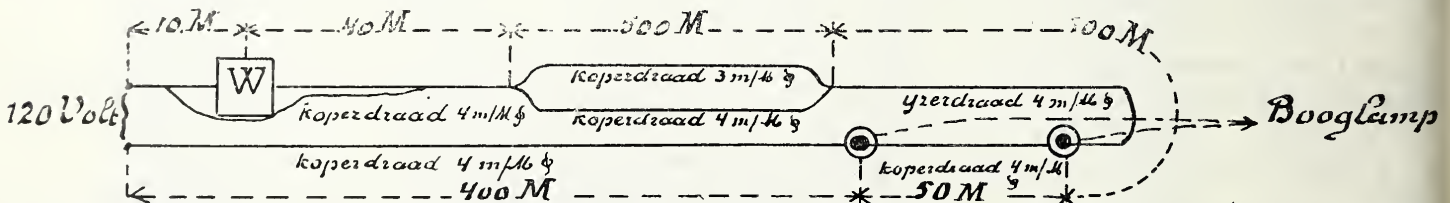 10 M 40 M 300 M 100 M
W
koperdraad 3 m/M
120 Volt
koperdraad 4 m/M
koperdraad 4 m/M
yzerdraad 4 m/M
Booglamp
koperdraad 4 m/M
koperdraad 4 m/M
400 M
50 M